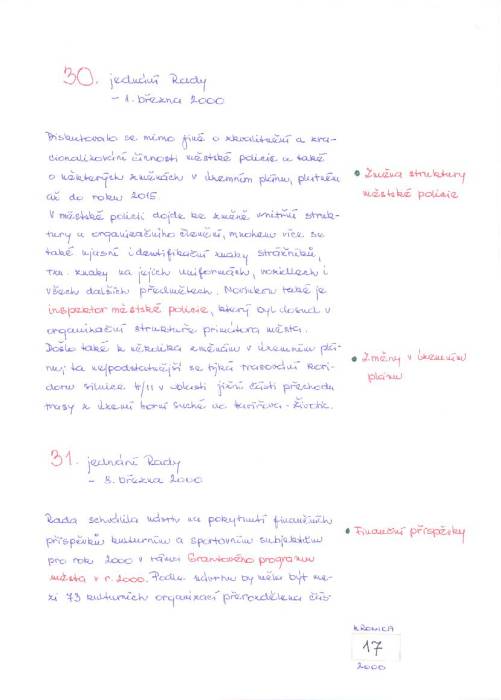 30. jednání Rady
– 1. března 2000
Diskutovalo se mimo jiné o zkvalitnění a ra-
cionalizování činnosti městské policie a také
o některých změnách v územním plánu, platném
až do roku 2015.
• Změna struktury
městské policie
V městské policii dojde ke změně vnitřní struk-
tury a organizačního členění, mnohem více se
také ujasní identifikační znaky strážníků,
tzn. znaky na jejich uniformách, vozidlech i
všech dalších předmětech. Novinkou také je
inspektor městské policie, který byl dosud v
organizační struktuře primátora města.
Došlo také k několika změnám v územním plá-
nu; ta nejpodstatnější se týká trasování kori-
doru silnice I/11 v oblasti jižní části přechodu
trasy z území Horní Suché na Havířova-Životic.
• Změny v územním
plánu
31. jednání Rady
– 8. března 2000
Rada schválila návrh na poskytnutí finančních
příspěvků kulturním a sportovním subjektům
pro rok 2000 v rámci Grantového programu
města v r. 2000. Podle návrhu by mělo být me-
zi 73 kulturních organizací přerozdělena část-
• Finanční příspěvky
KRONIKA
17
2000